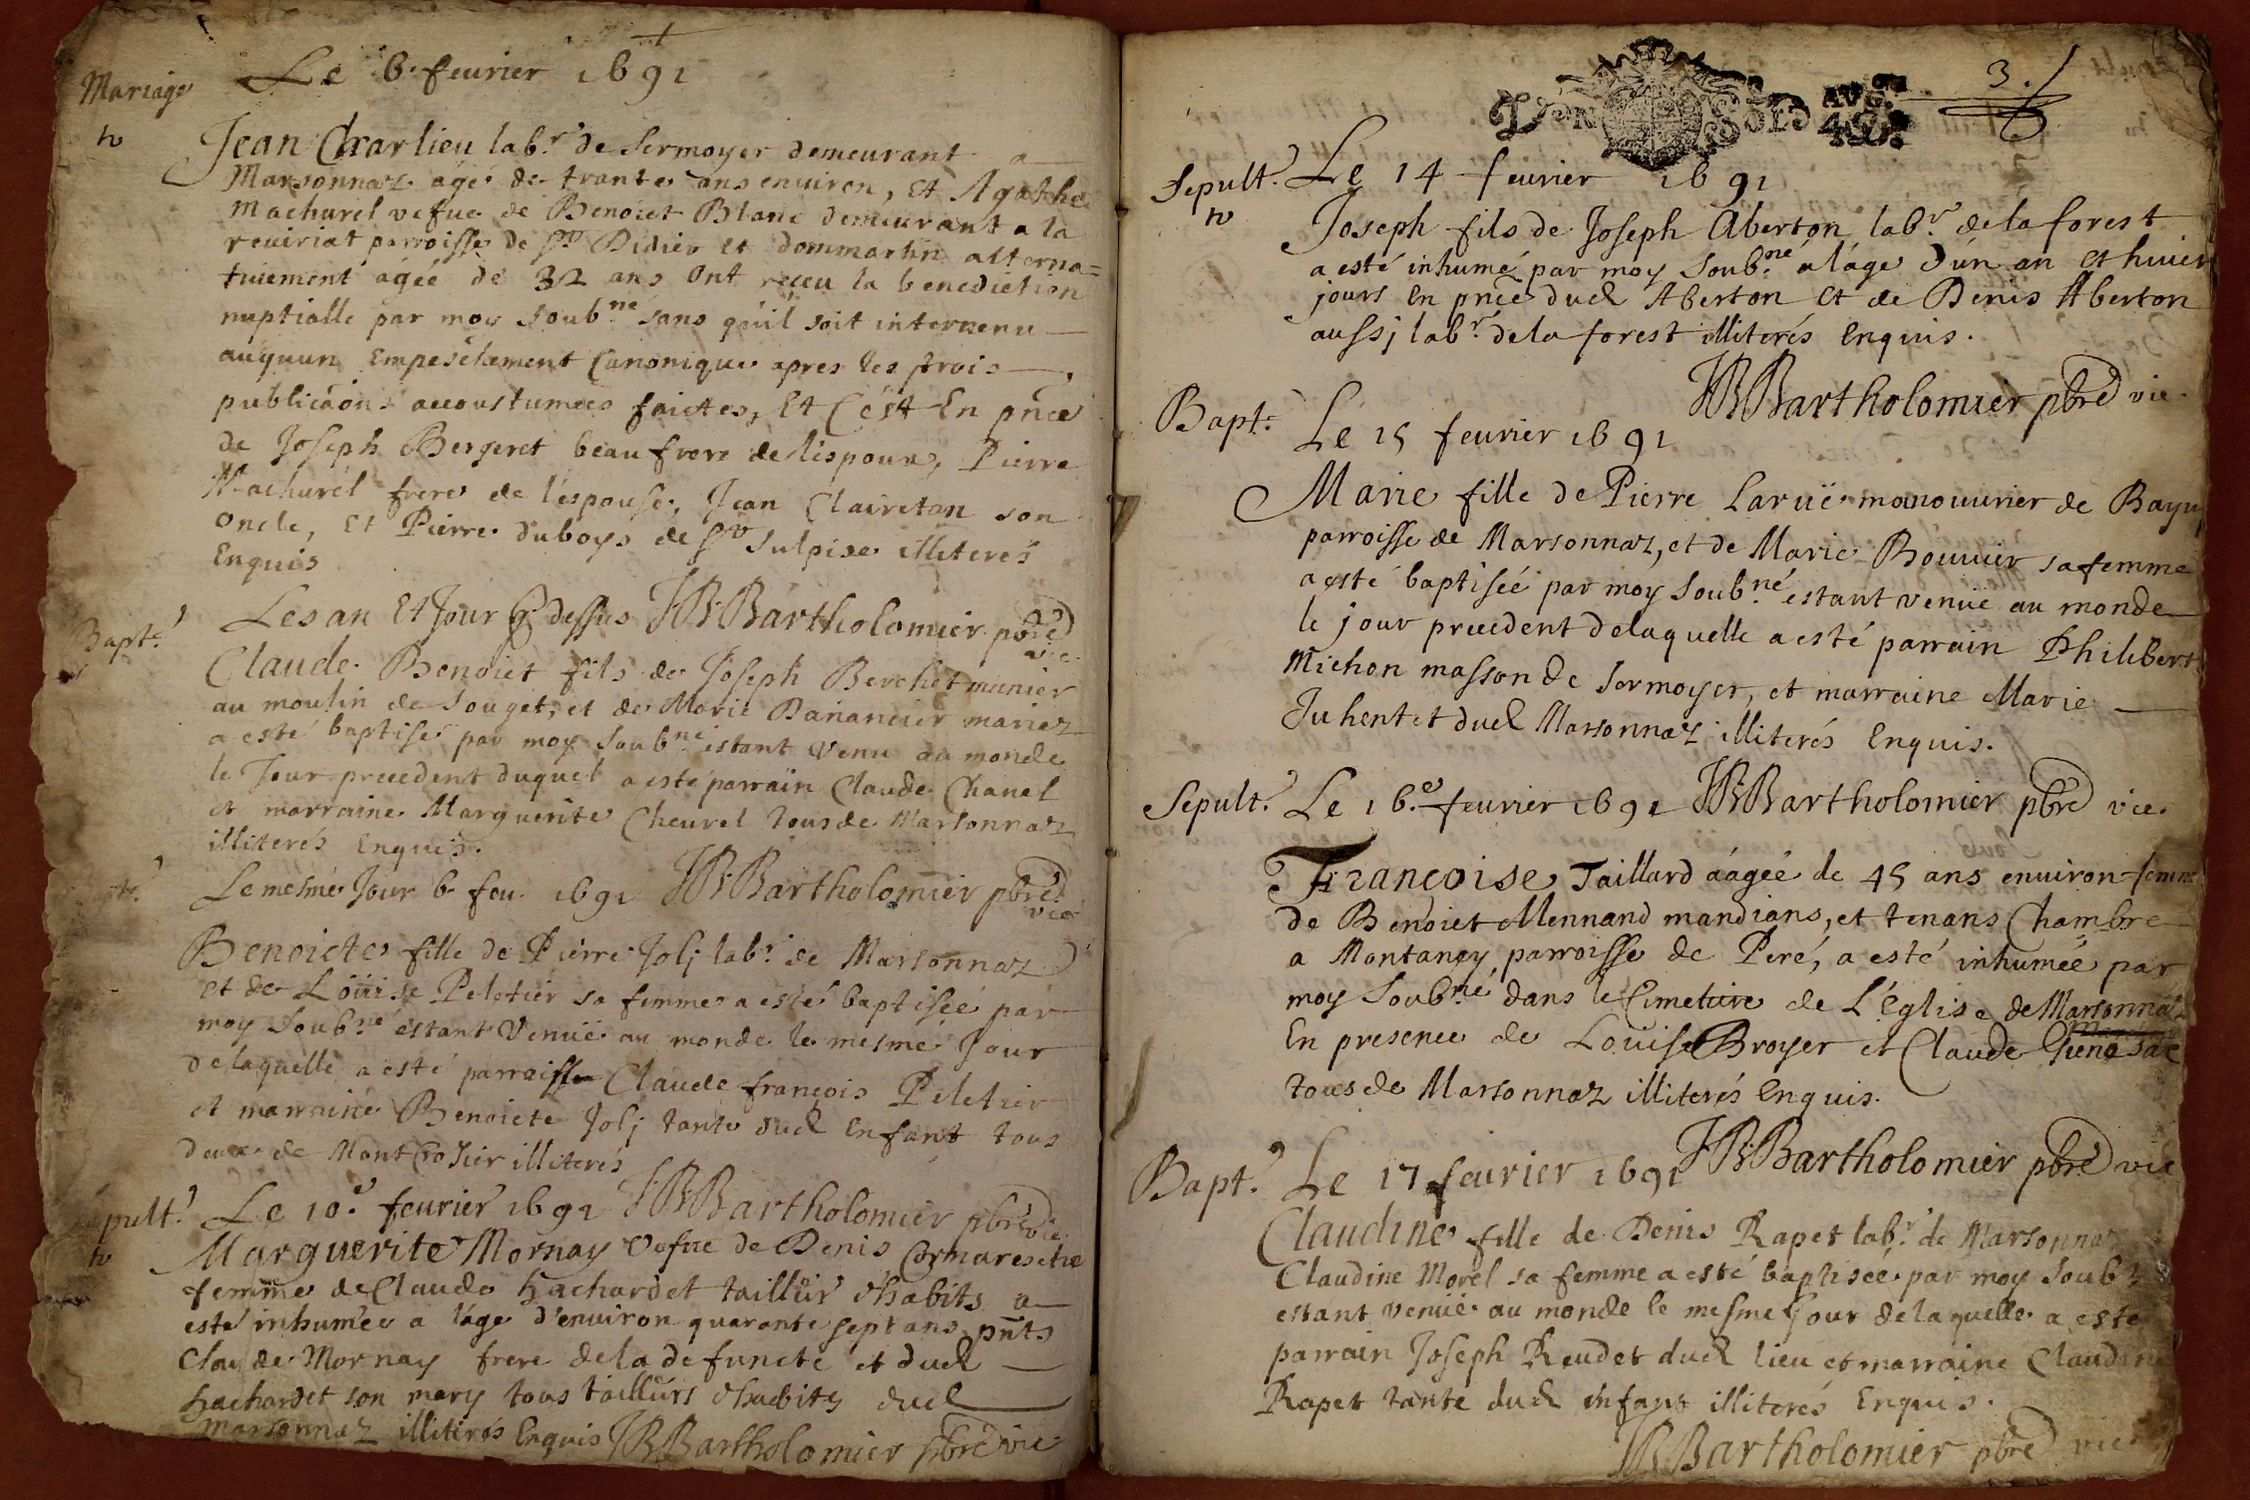 Mariage
Le 6. feurier 1691
Jean Charlieu labr. de Sermoyer demeurant a
Marsonnaz agé de trante ans enuiren, et Agathe
Machurel vefue de Benoict Blanc demeurant a la
reuiriat parroisse de St Didier et dommartin alterna=
tiuement agéé de 32 ans Ont receu la benediction
nuptialle par moy soubné sans quil soit interuenu
auquun Empeschement Canonique apres les trois
publicaons accoustumees faictes, Et C'est En pnce
de Joseph Bergeret beau frere de lespoux, Pierre
Machurel frere de l'espouse, Jean Clairetan son
oncle, Et Pierre duboys de St Sulpise illiterés
Enquis
Bapt.
Les an Et Jour Cy dessus JB. Bartholomier pbre vic.
Claude Benoict fils de Joseph Berchet munier
au moulin de Souget, et de Marie Bañancier mariez
a esté baptisé par moy soubné estant Venu au monde
le Jour precedent duquel a esté parrain Claude Chanel
et marraine Marguerite Cheurel tous de Marsonnaz
illiterés Enquis.
Le mesme Jour 6 feu. 1691 JB. Bartholomier pbre vic
Benoicte fille de Pierre Jolj labr. de Marsonnaz
et de Loüise Peletier sa femme a esté baptiséé par
moy soubné estant Venuë au monde le mesme Jour
delaquelle a esté parraisse Claude françois Peletier
et marraine Benoicte Jolj tante dud Enfant tous
deux de MontCrosier illiterés
Sepult.
Le 10e. feurier 1691 JB. Bartholomier pbre vic
Marguerite Mornay Vefue de Denis Cormaresche
femme de Claude hachardet tailleur d'habits a
esté inhuméé a l'age d'enuiron quarante sept ans pnts
Claude Mornay frere dela defuncte et dud
hachardet son mary tous tailleurs d'habits dud
Marsonnaz illiterés Enquis JB. Bartholomier pbre vic
3.
Sepult.
Le 14 feurier 1691
Joseph fils de Joseph Aberton labr. dela forest
a esté inhumé par moy soubné a lage d'un an et huict
jours En pnce dud Aberton Et de Denis Aberton
aussj labr. dela forest illiterés Enquis.
JB. Bartholomier pbre vic.
Bapt.
Le 15 feurier 1691
Marie fille de Pierre Laruë manouurier de
parroisse de Marsonnaz, et de Marie Bouuier sa femme
a esté baptiséé par moy soubné estant venuë au monde
le jour precedent delaquelle a esté parrain Philibert
Michon masson de Sermoyer, et marraine Marie
Juhentet dud Marsonnaz illiterés Enquis.
Sepult.
Le 16.e feurier 1691 JB. Bartholomier pbre vic.
Françoise Taillard áagéé de 45 ans enuiron femme
de Benoict Mennand mandians, et tenans Chambre
a Montaney parroisse de Peré, a esté inhuméé par
moy soubné dans le Cimetiere de L'Eglise de Marsonnaz
En presence de Louise Broyer et Claude
tous de Marsonnaz illiterés Enquis.
Bapt.
Le 17 feurier 1691 JB. Bartholomier pbre vic
Claudine fille de Denis Rapet labr. de Marsonnaz
Claudine Morel sa femme a esté baptiséé par moy soubné
estant venuë au monde le mesme Jour delaquelle a esté
parrain Joseph Reudet dud lieu et marraine Claudine
Rapet tante dud Enfant illiterés Enquis.
JB. Bartholomier pbre vic